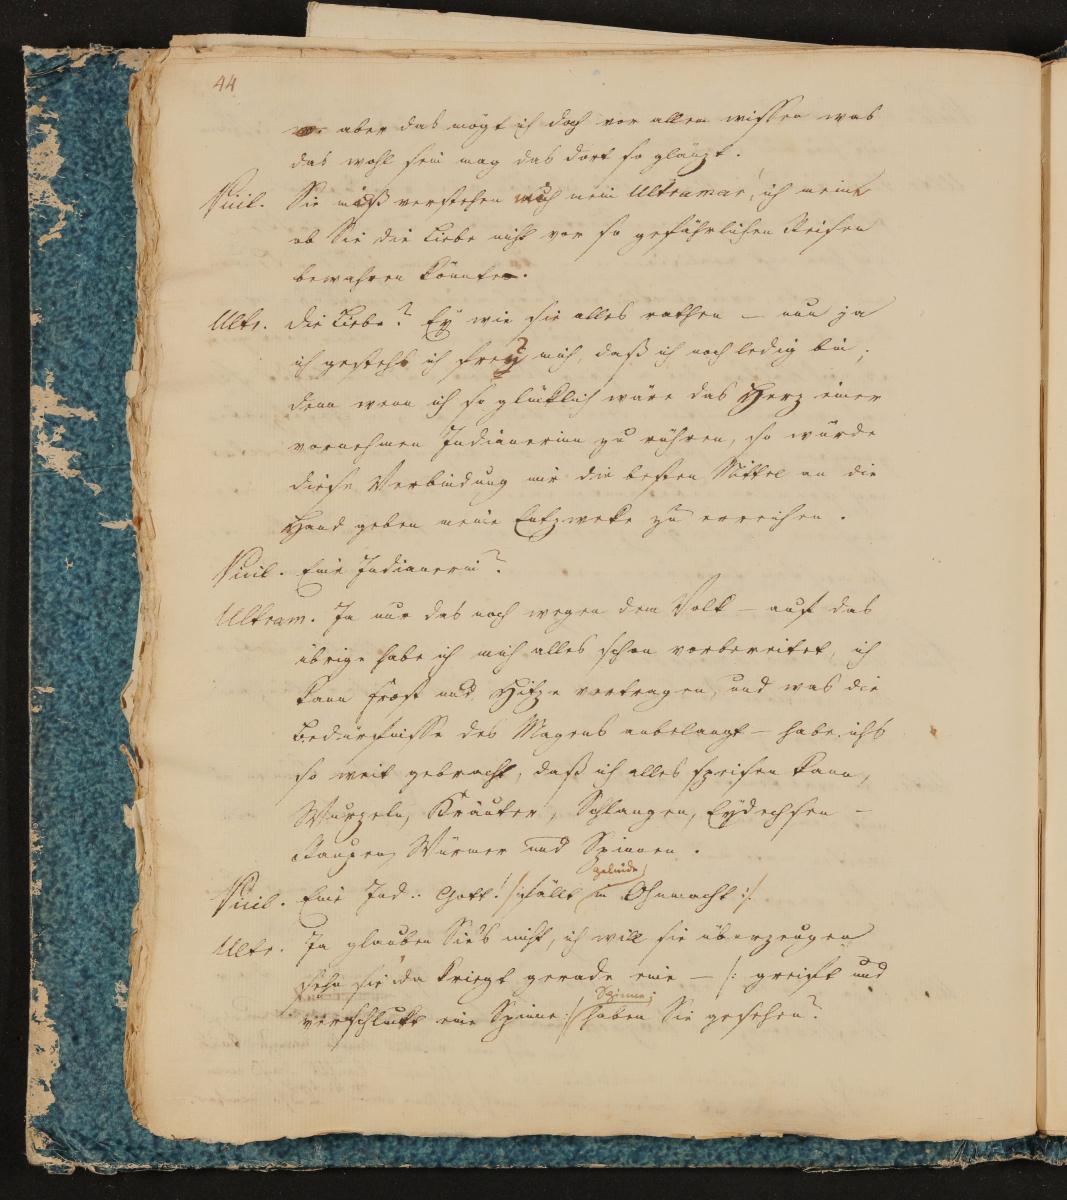 44
w. aber das mögt ich doch vor allem wissen was
das wohl sein mag das dort so glänzt.
Vicil. Sie müß verstehen mich mein Ultramar, ich meinte
ob Sie die Liebe nicht vor so gefährlichen Reisen
bewahren könnte.
Ultr. die Liebe? Ey wie sie alles rathen – nun ja
ich gestehs ich freu mich, daß ich noch ledig bin,
denn wenn ich so glücklich wäre das Herz einer
vornehmen Indianerinn zu rühren, so würde
diese Verbindung mir die besten Mittel an die
Hand geben meine Entzweke zu erreichen.
Vicil. Eine Indianerin?
Ultram. Ja nur das noch wegen dem Volk – auf das
übrige habe ich mich alles schon vorbereitet, ich
kann Frost und Hitze vertragen, und was die
Bedürfnisse des Magens anbelangt – habe ichs
so weit gebracht, daß ich alles speisen kann,
Wurzeln, Kräuter, Schlangen, Eydechsen –
Raupen, Würmer und Spinnen.
gelinde
Vicil. Eine Ind.. Gott! /: fällt in Ohnmacht :/
Ultr. Ja glauben Sie's nicht, ich will sie überzeugen
sehn sie da kriegt gerade eine – /: greift und
Spinne;
verschluckt eine Spinne :/ haben Sie gesehen?